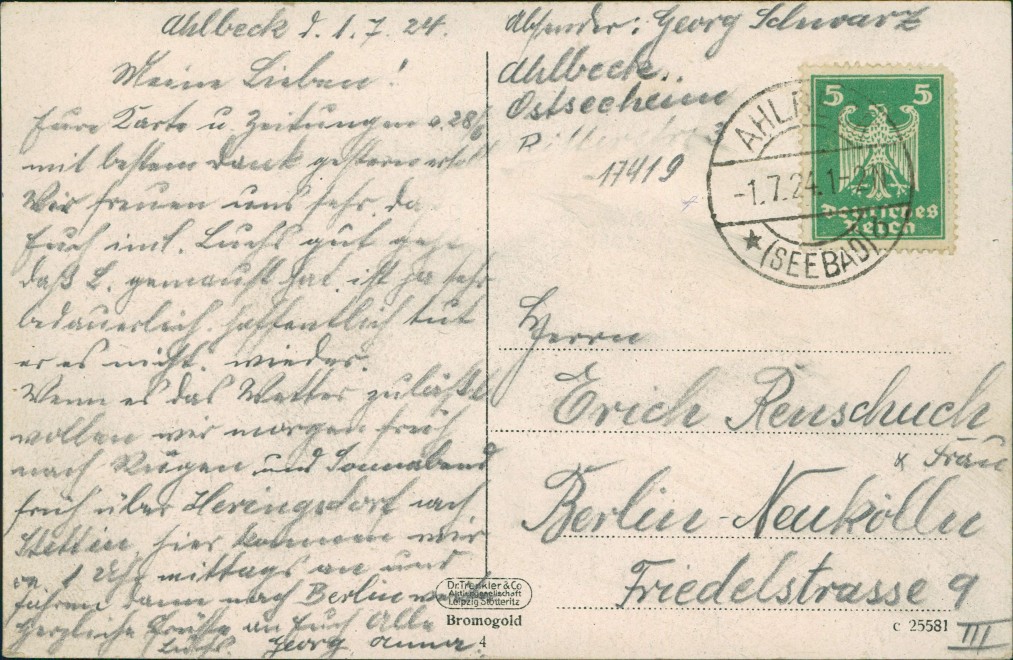 Ahlbeck d. 1.7.24.
Meine Lieben!
Eure Karte u. Zeitungen v. 28/6
mit bestem Dank gestern erhalt
Wir freuen uns sehr, da
Euch incl. Luchs gut gehe
daß L. gemaust hat, ist ja sehr
bedauerlich. hoffentlich tut
er es nicht wieder.
Wenn es das Wetter zuläßt
wollen wir morgen früh
nach Rügen und Sonnabend
früh über Heringsdorf nach
Stettin, hier kommen wir
ca. 1 Uhr mittags an und
fahren dann nach Berlin
Herzliche Grüße an Euch Alle
Luchs. Georg Anna.
Absender: Georg Schwarz
Ahlbeck,
Ostseeheim
17419
AHLBECK
-1.7.24.1-2N
★ (SEEBAD) b
5 5
Deutsches
Reich
Herrn
Erich Renschuch
& Frau
Berlin-Neukölln
Friedelstrasse 9
III
Dr. Trenkler & Co
Aktiengesellschaft
Leipzig-Stötteritz
Bromogold
4
c 25581